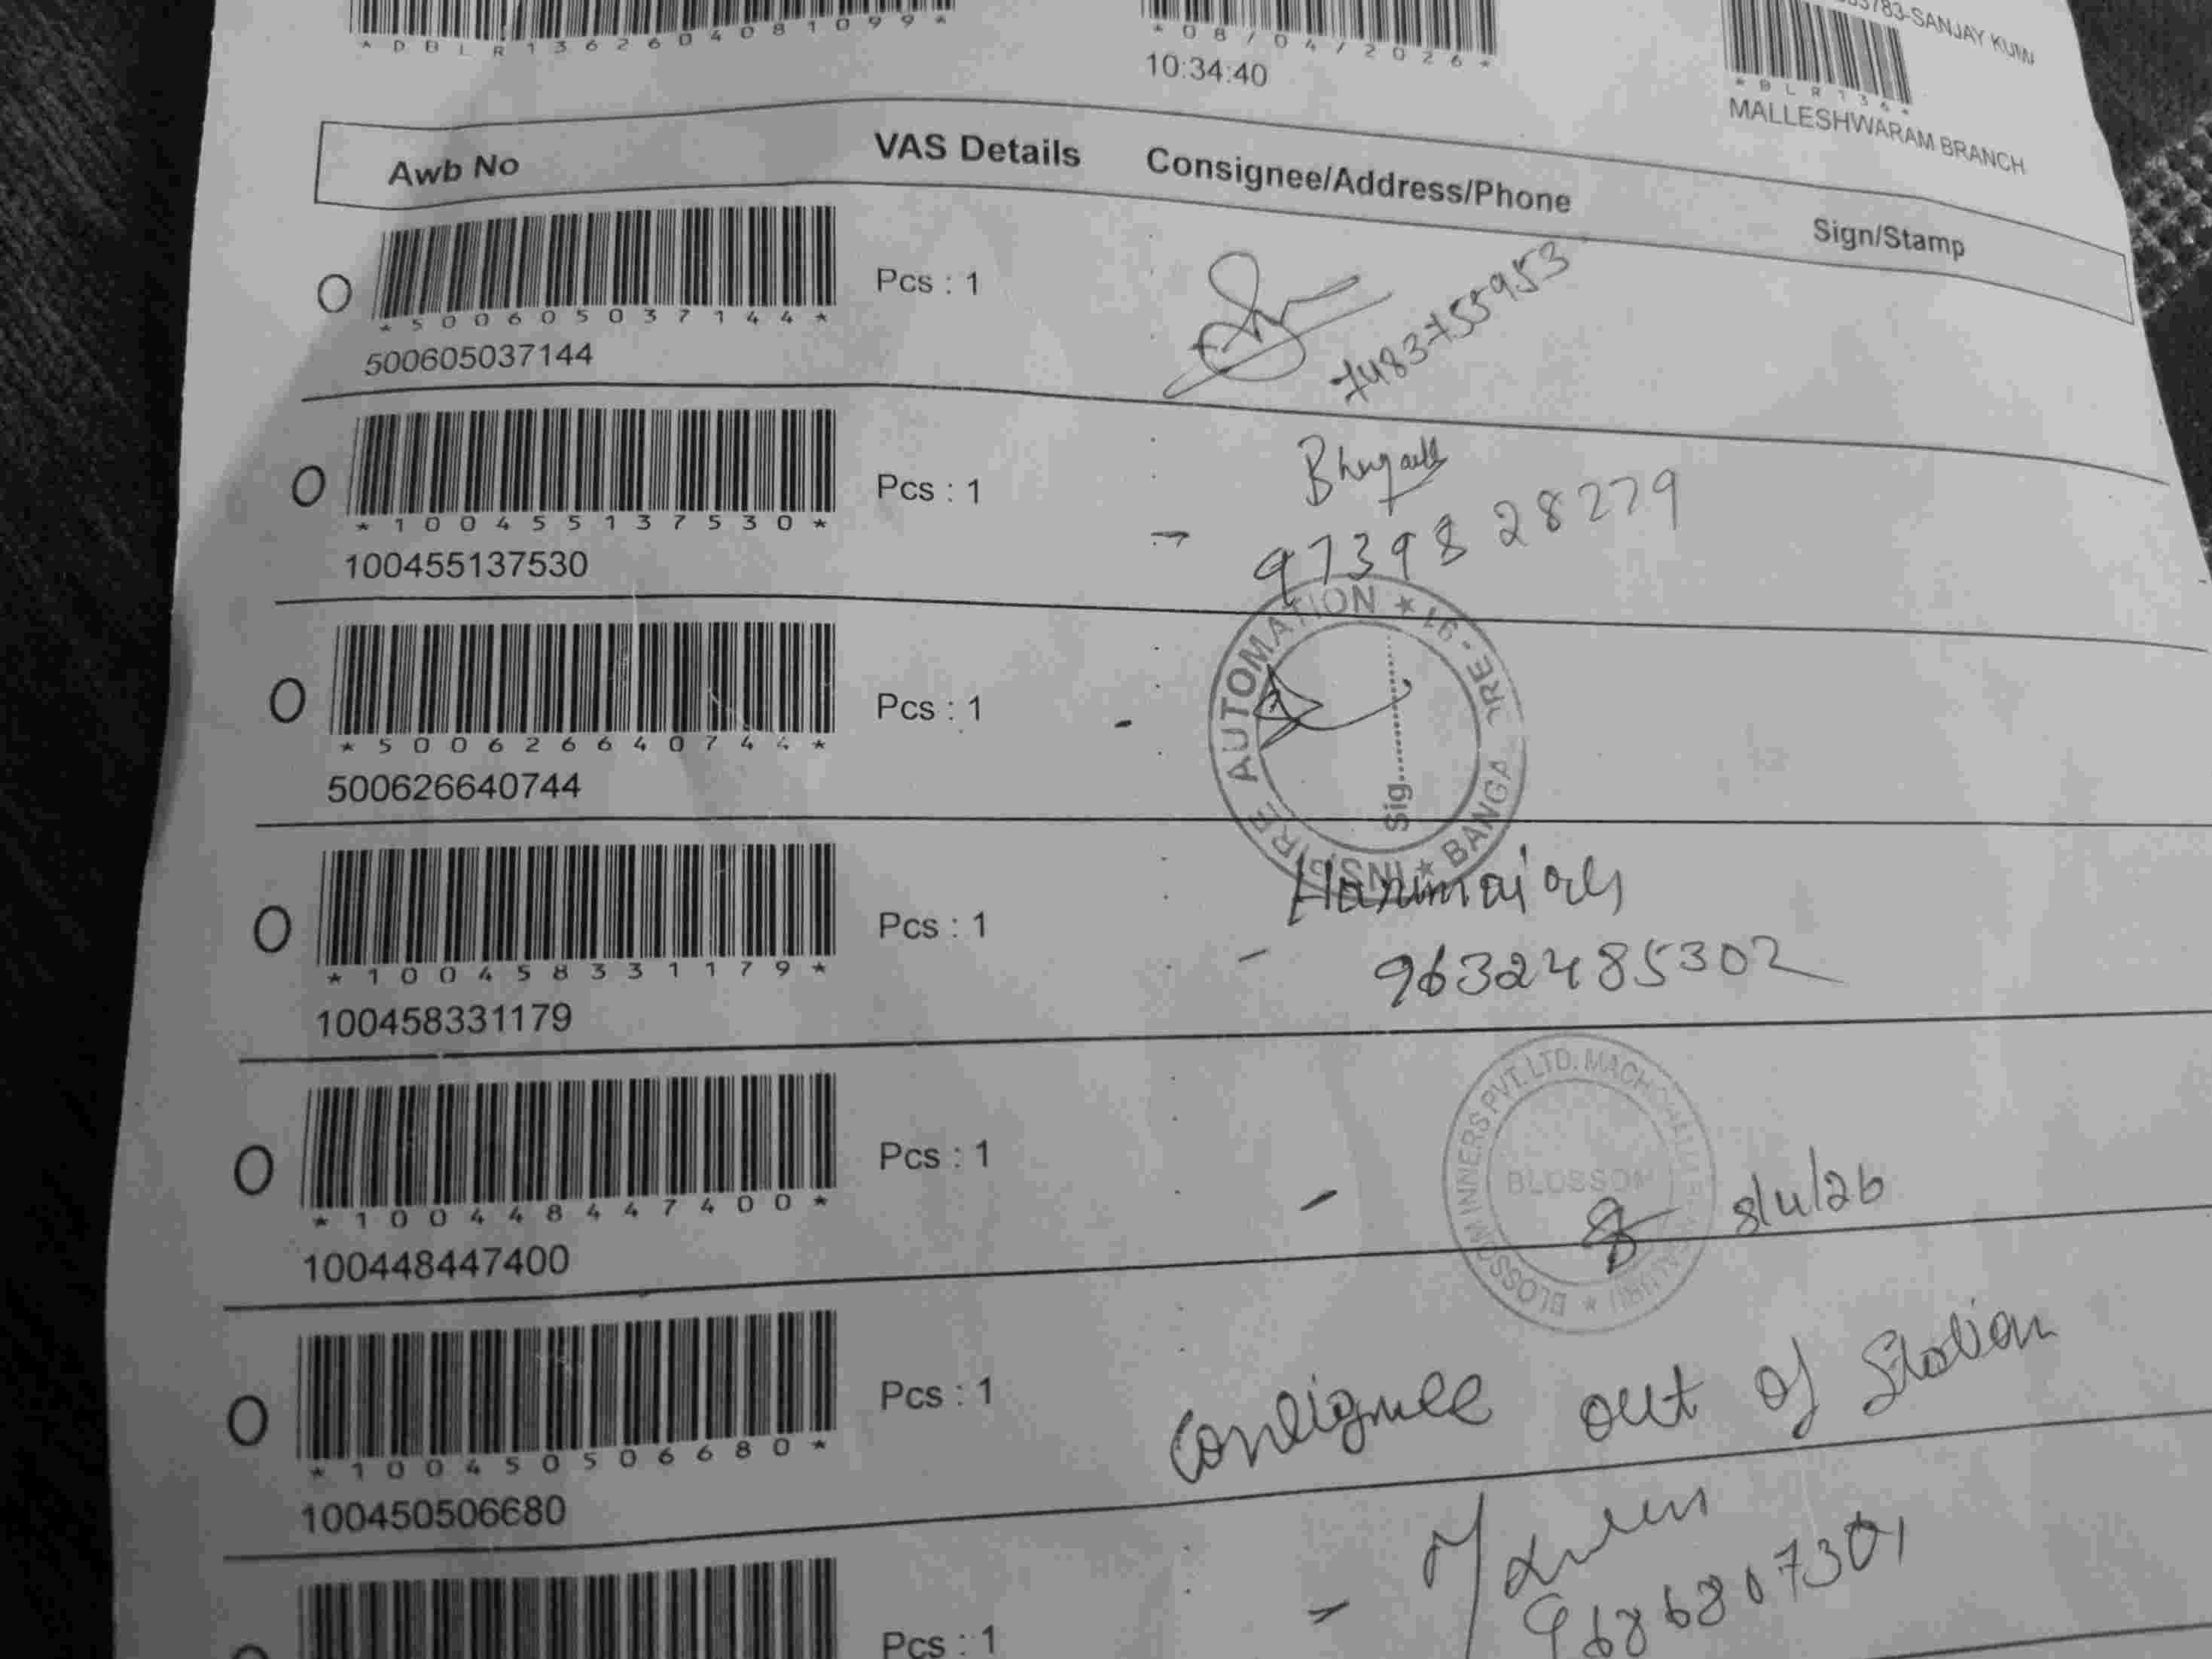 *DBLR1362604081099*
*08/04/2026*
10:34:40
83783-SANJAY KUM
*BLR136*
MALLESHWARAM BRANCH
Awb No VAS Details Consignee/Address/Phone Sign/Stamp
*500605037144*
500605037144
Pcs : 1
7483755953
*100455137530*
100455137530
Pcs : 1
97398 28279
*500626640744*
500626640744
Pcs : 1
INSPIRE AUTOMATION ★ BANGA ORE - 91 ★
Sig
*100458331179*
100458331179
Pcs : 1
9632485302
*100448447400*
100448447400
Pcs : 1
BLOSSOM INNERS PVT. LTD.
BLOSSOM
8/4/26
*100450506680*
100450506680
Pcs : 1
Consignee out of Station
Pcs : 1
9686807301